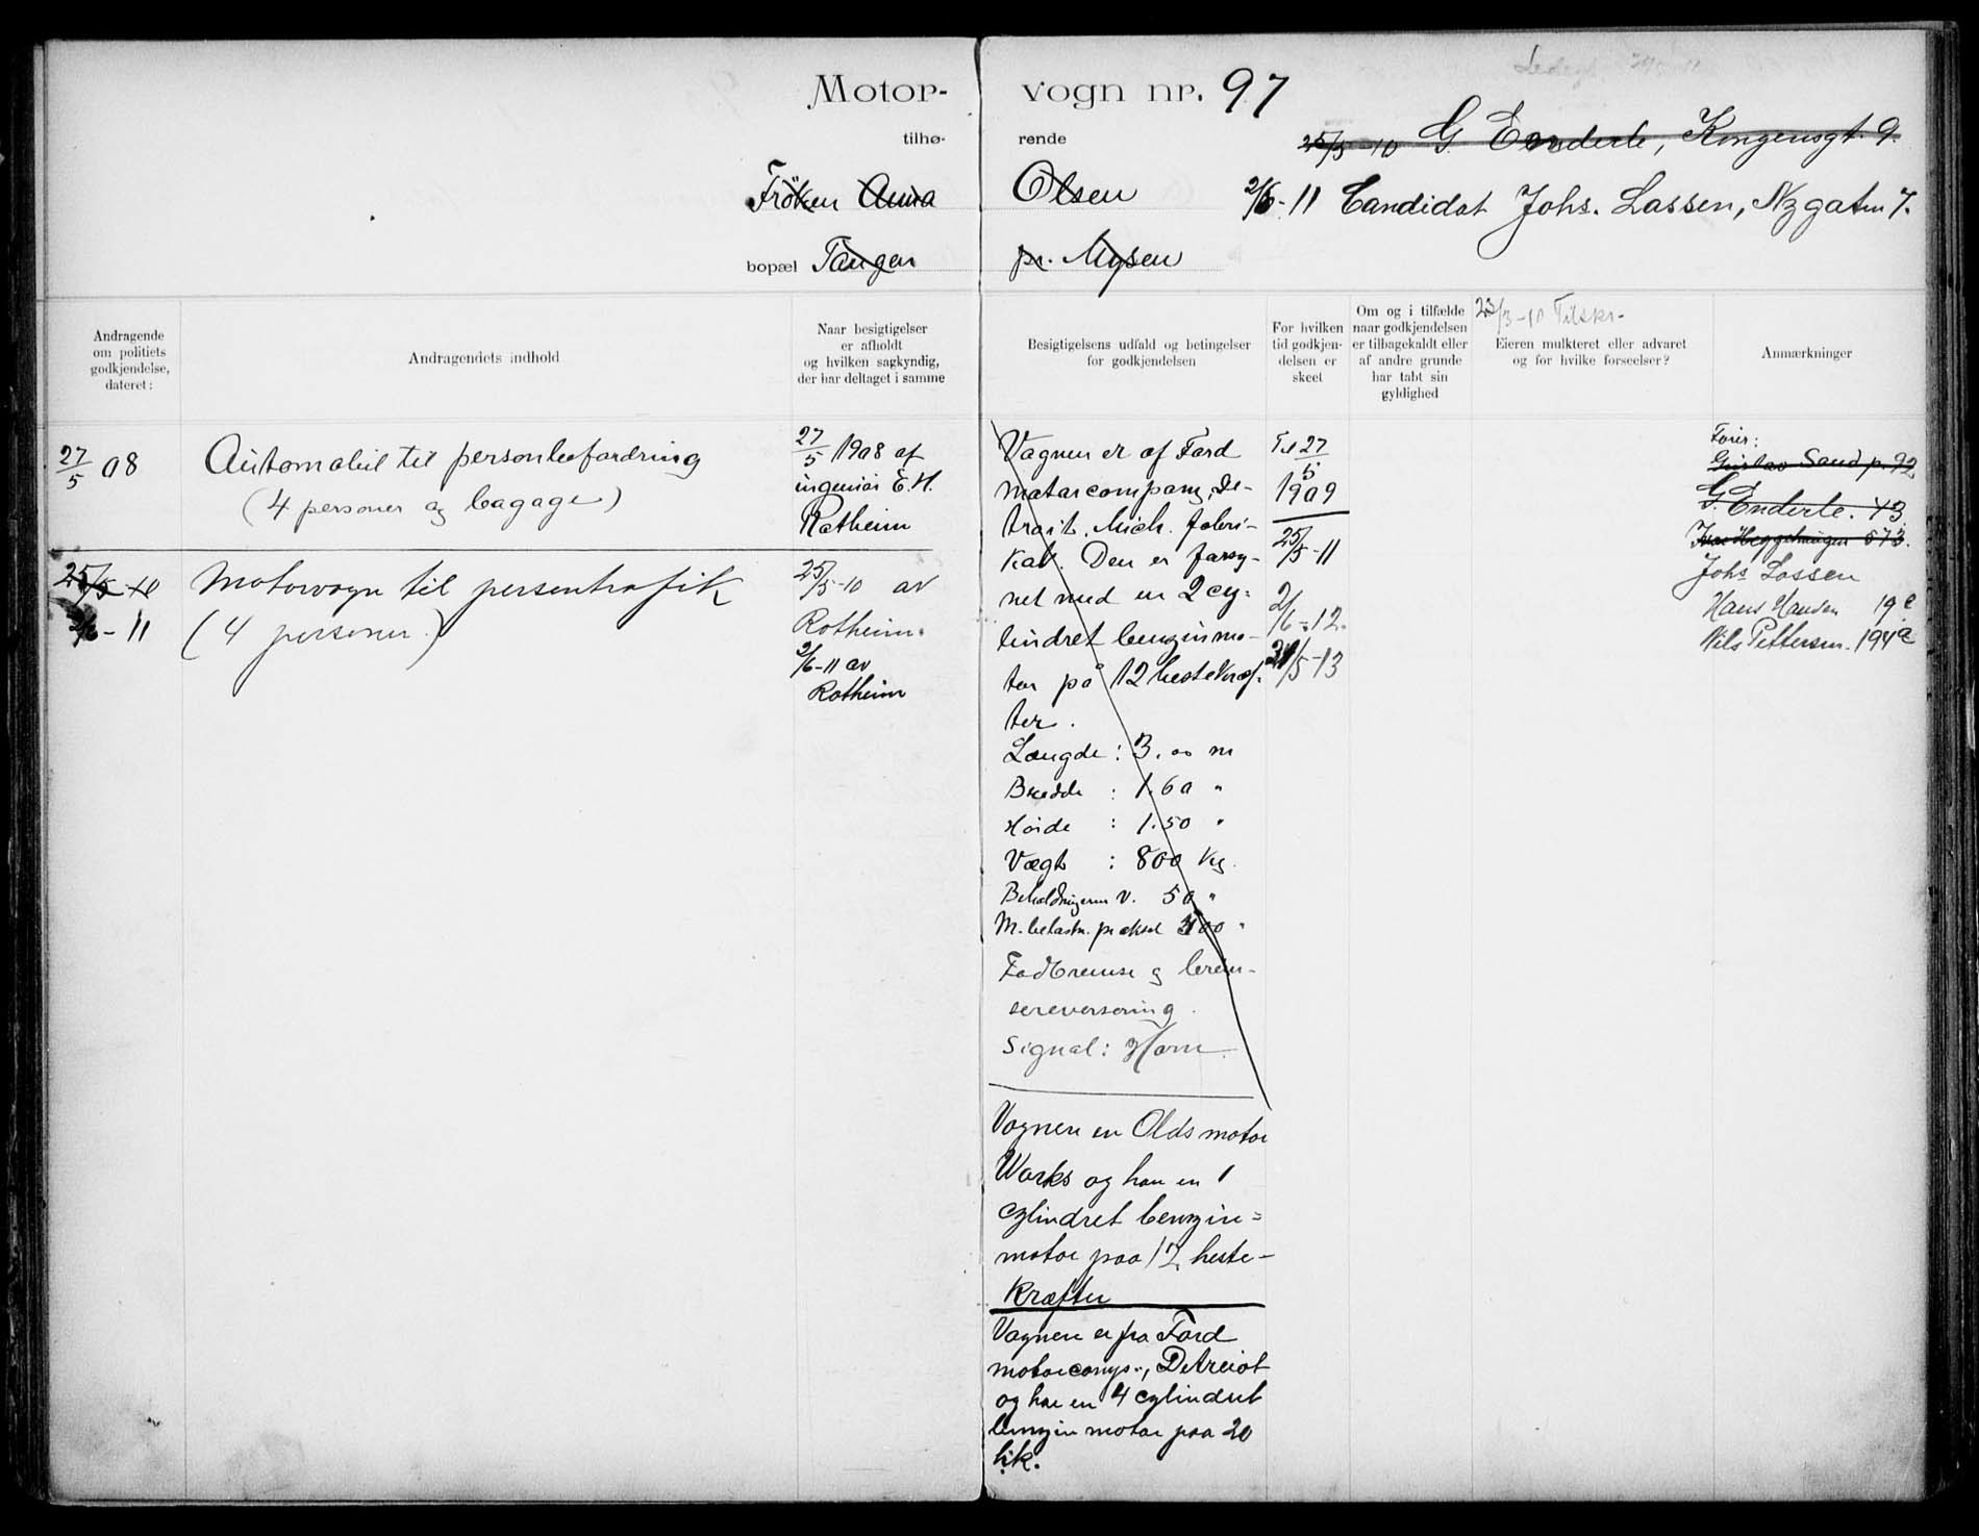 Motor- vogn nr. 97
tilhø- rende
25/5-10 G Enderle, Kongensgt. 9.
Frøken Anna Olsen
2/6-11 Candidat Johs. Lassen, Nygaten 7.
bopæl Tangen pr. Mysen
23/3-10 Tilskr-
Andragende
om politiets
godkjendelse,
dateret:
Andragendets indhold
Naar besigtigelser
er afholdt
og hvilken sagkyndig,
der har deltaget i samme
Besigtigelsens udfald og betingelser
for godkjendelsen
For hvilken
tid godkjen-
delsen er
skeet
Om og i tilfælde
naar godkjendelsen
er tilbagekaldt eller
af andre grunde
har tabt sin
gyldighed
Eieren mulkteret eller advaret
og for hvilke forseelser?
Anmærkninger
27/5 08
Automobil til personbefordring
(4 personer og bagage)
27/5 1908 af
ingeniør E.H.
Rotheim
25/5-10
2/6-11
Motorvogn til persontrafik
(4 personer.)
25/5-10 av
Rotheim.
2/6-11 av
Rotheim
Vognen er af Ford
motorcompany, De-
troit, Mich. fabri-
kat. Den er forsy-
net med en 2 cy-
lindret benzinmo-
tor på 12 hestekræf-
ter.
Længde : 3.00 m
Bredde : 1.60 "
Høide : 1.50 "
Vægt : 800 kg.
Beholdningernes v. 50 "
M. belastn. pr aksel 400 "
Fodbremse og brem-
sereversering.
Signal: Horn.
Vognen en Olds motor
Works og har en 1
cylindret benzin=
motor paa 12 heste-
kræfter
Vognen er fra Ford
motorcomp., Detroiot
og har en 4 cylindret
benzin motor paa 20
h.k.
Til 27/5
1909
25/5-11
2/6-12.
31/5-13
Fører:
Gustav Sand p. 92
G. Enderle. 43
Heggehaugen 573.
Johs Lassen
Hans Hansen 19 e
Nils Pettersen. 194 a